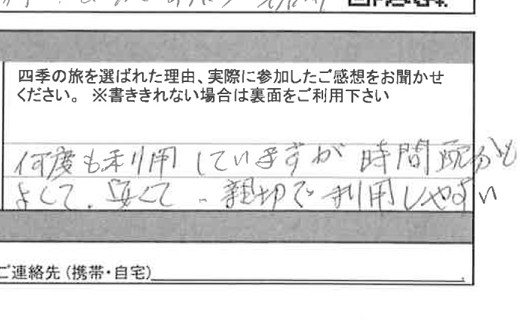 四季の旅を選ばれた理由、実際に参加したご感想をお聞かせ
ください。 ※書ききれない場合は裏面をご利用下さい
何度も利用していますが 時間配分も
よくて、安くて、親切で利用しやすい
ご連絡先(携帯・自宅)